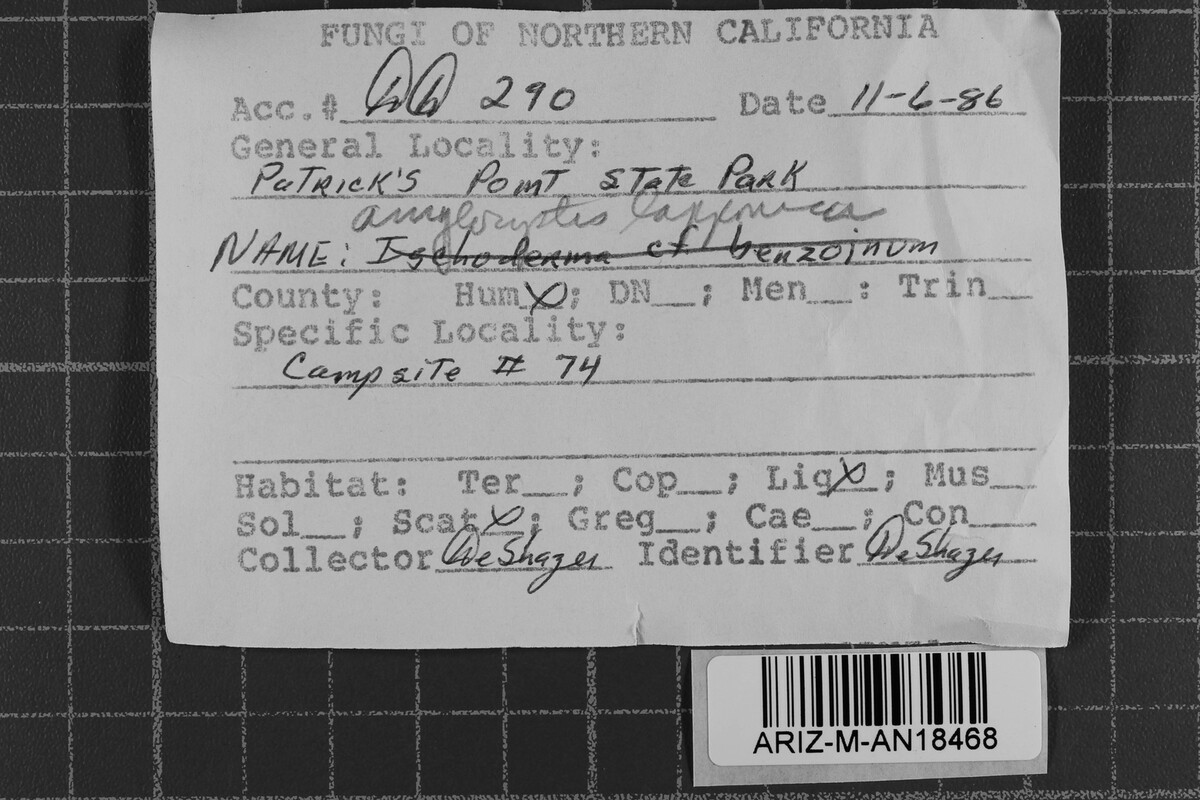 FUNGI OF NORTHERN CALIFORNIA
Acc.# 290 Date 11-6-86
General Locality:
Patrick's Point State Park
amylocystis lapponica
NAME: Ischoderma cf benzoinum
County: Hum X; DN__; Men__: Trin__
Specific Locality:
Campsite # 74
Habitat: Ter__; Cop__; Lig X; Mus__
Sol__; Scat X; Greg__; Cae__; Con__
Collector DeShazer Identifier DeShazer
ARIZ-M-AN18468